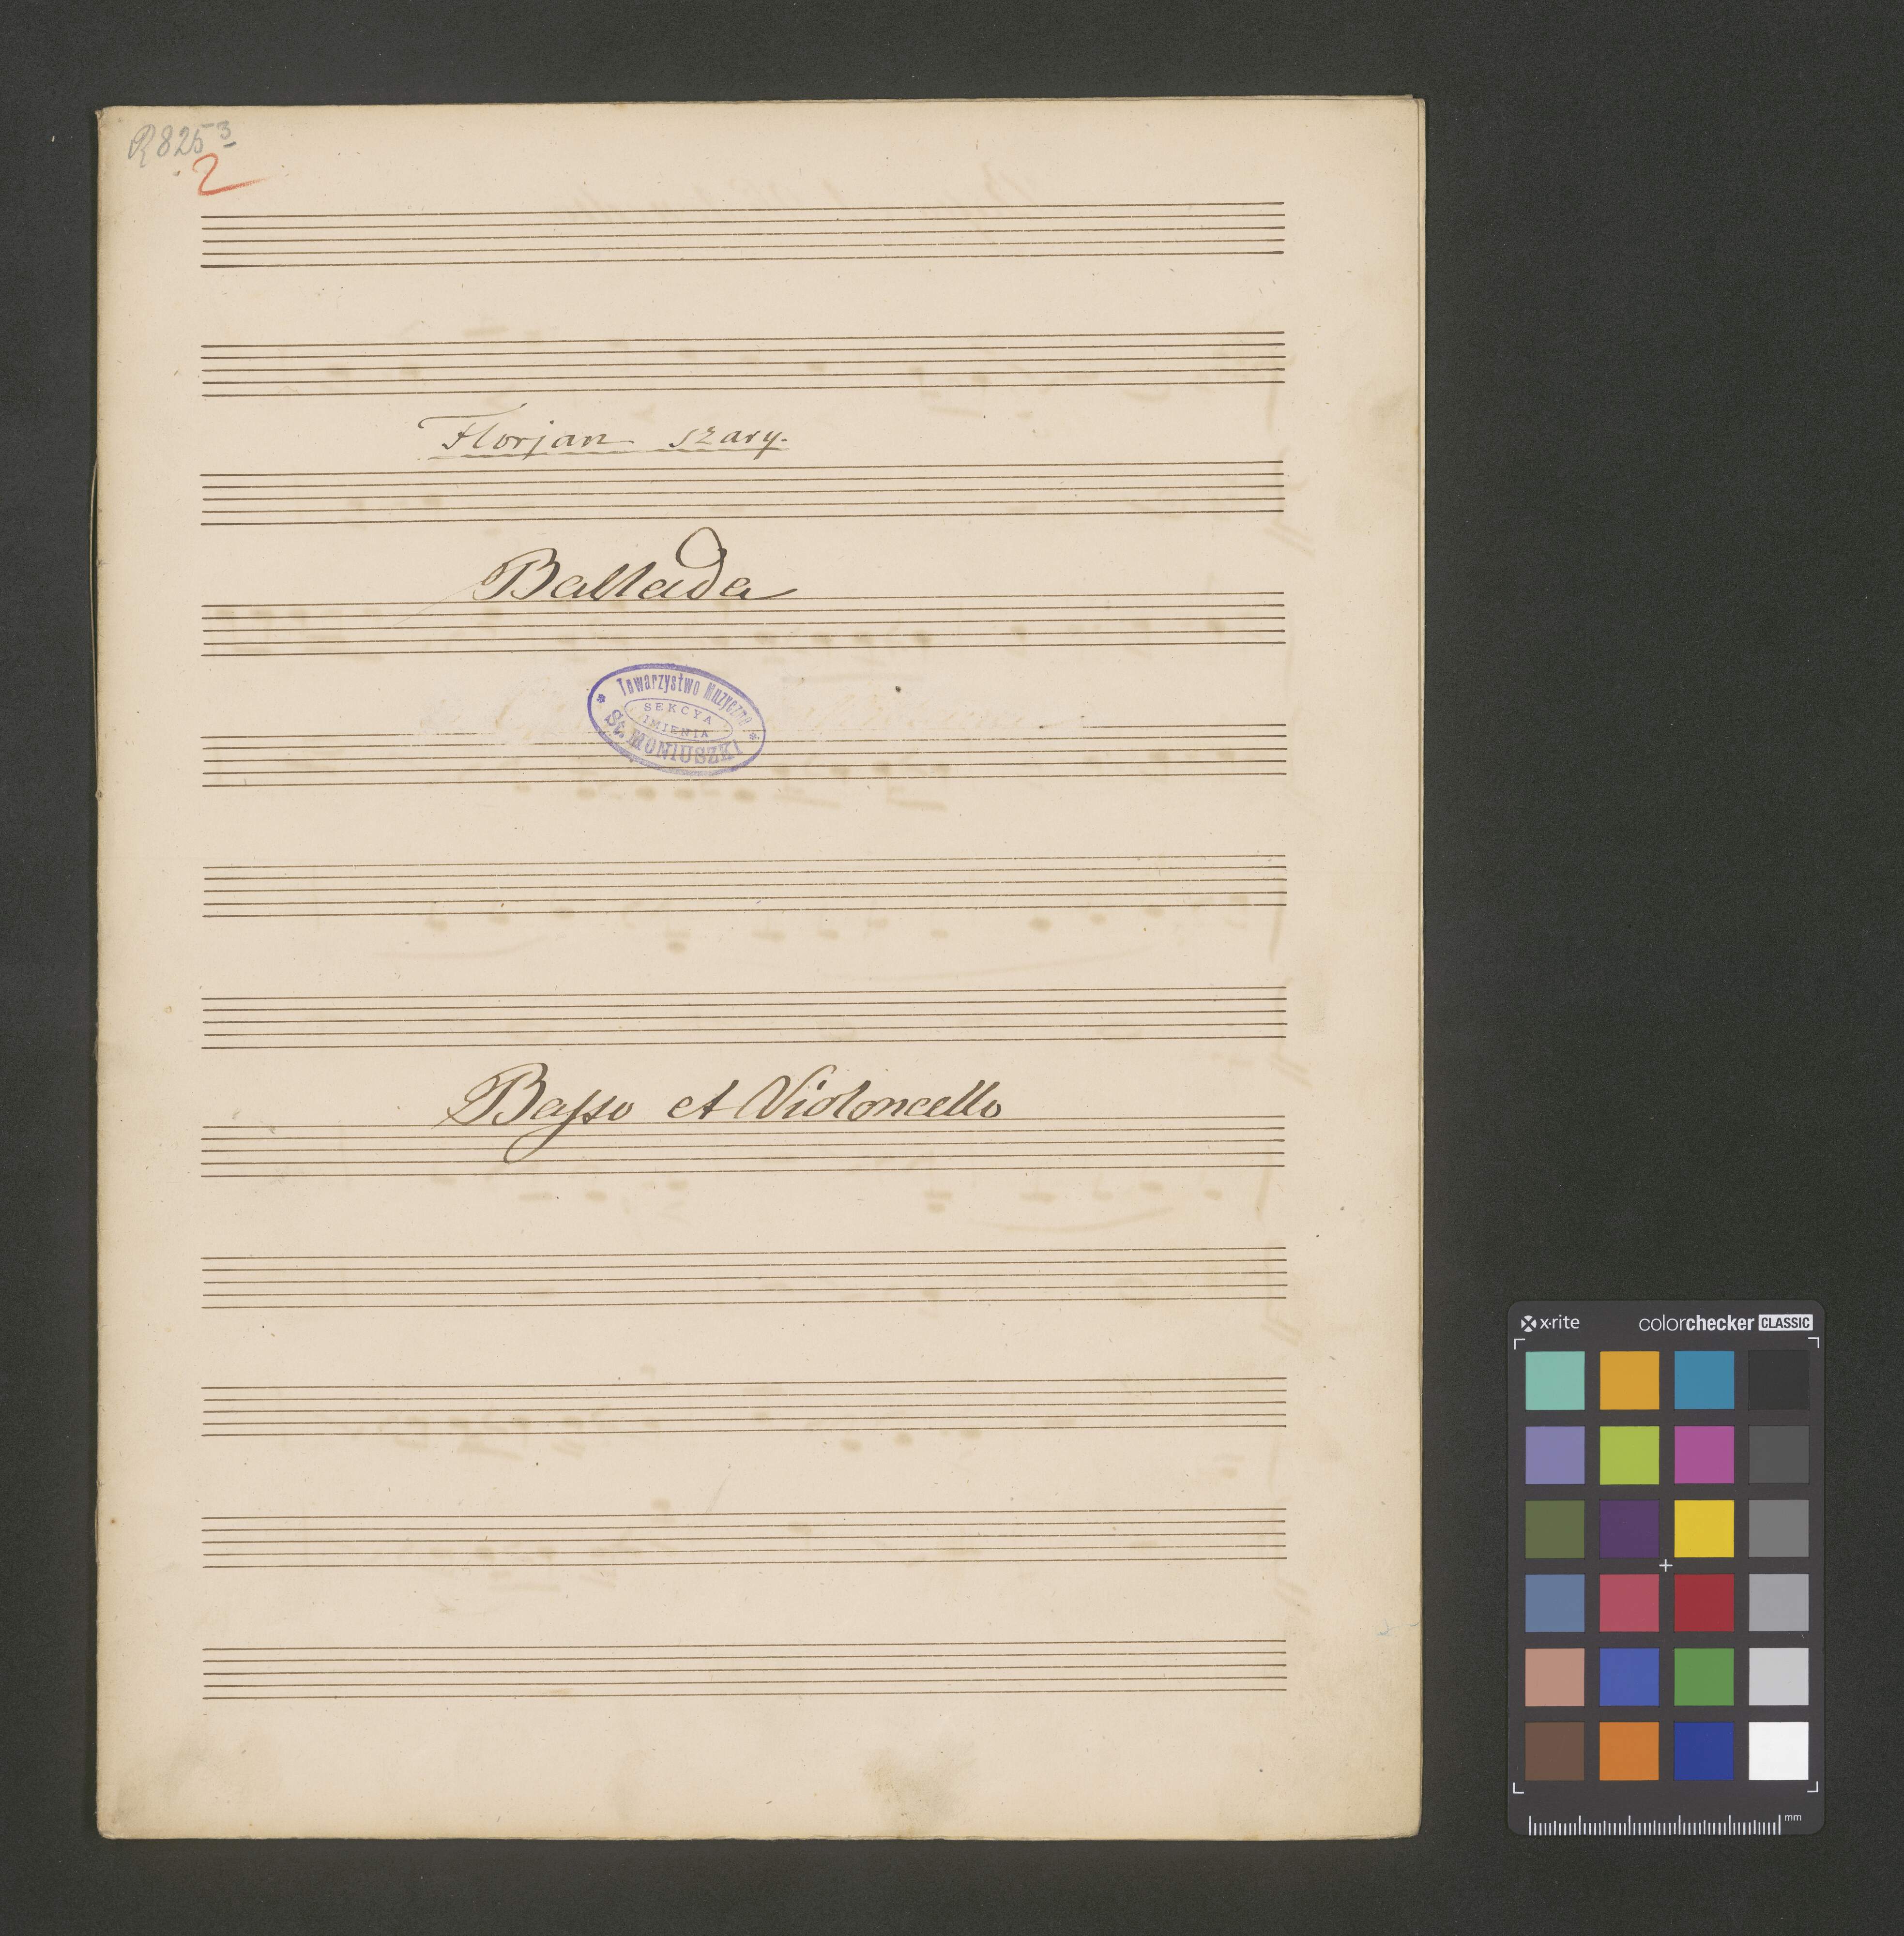 R825 3
2
Florjan szary.
Ballada
Towarzystwo Muzyczne
SEKCYA
IMIENIA
St. MONIUSZKI
Basso et Violoncello
x·rite colorchecker CLASSIC
mm